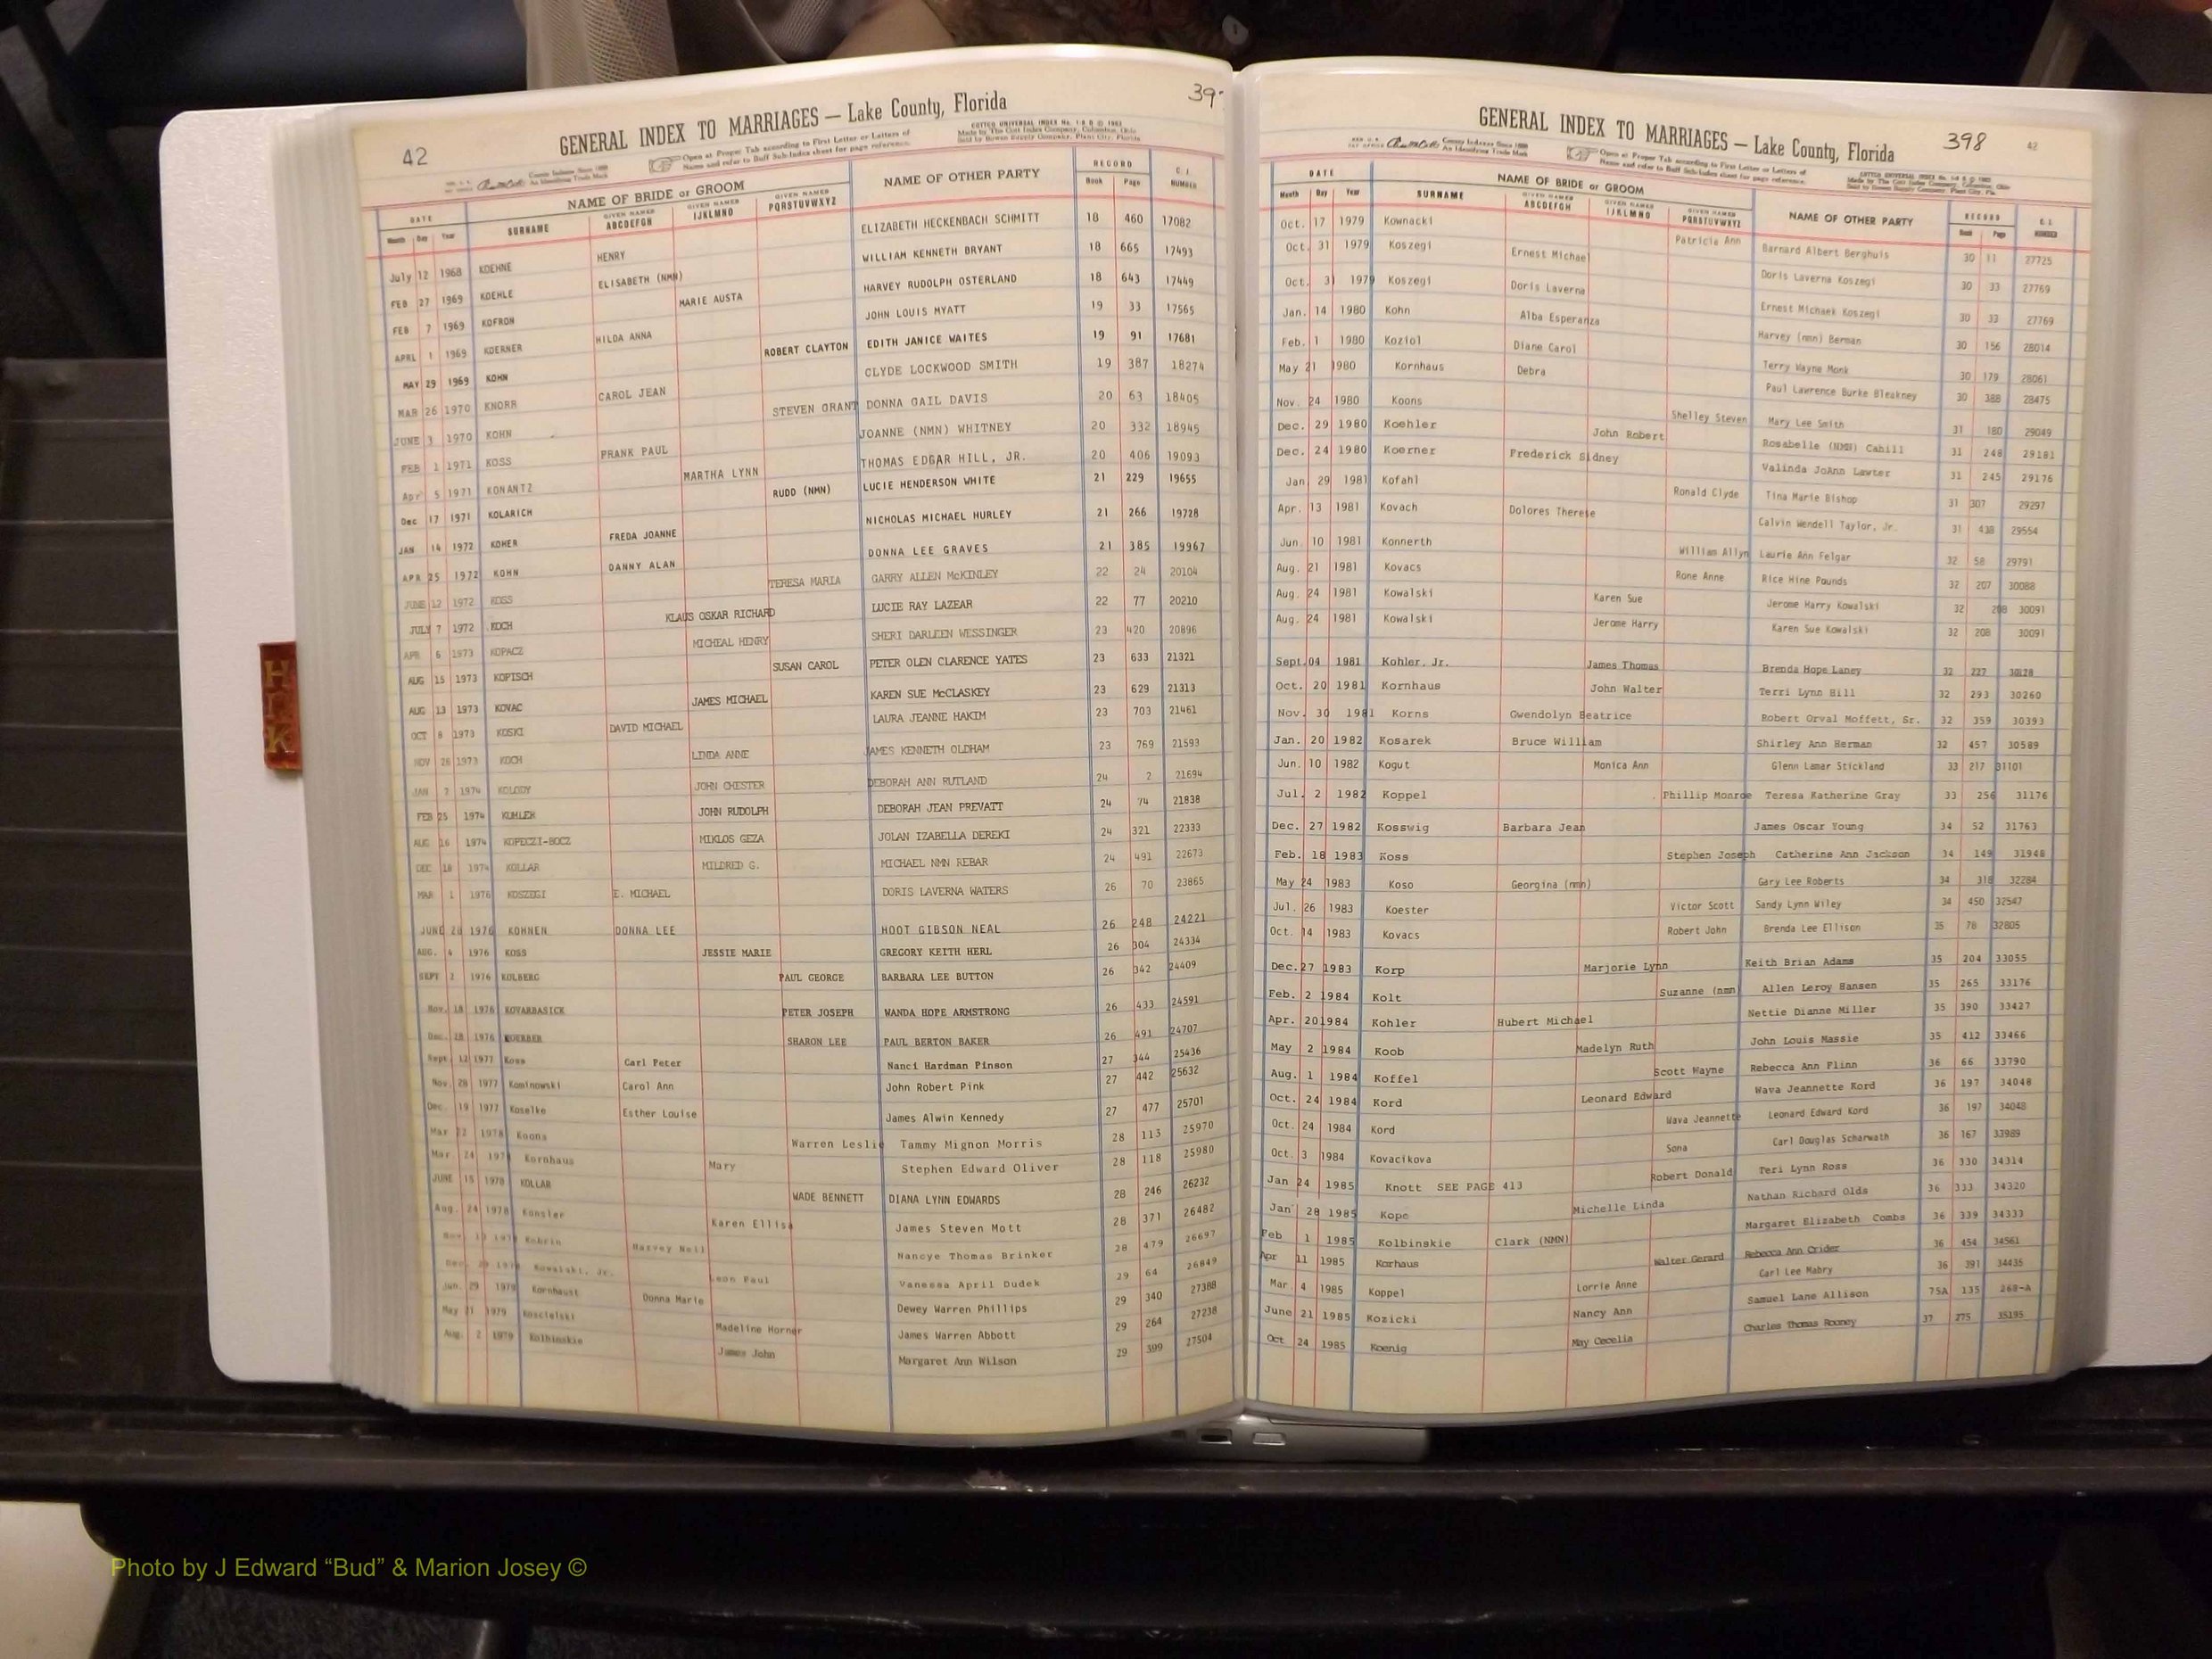 42
GENERAL INDEX TO MARRIAGES — Lake County, Florida
39
Open at Proper Tab according to First Letter or Letters of
Name and refer to Buff Sub-Index sheet for page reference.
DATE NAME OF BRIDE or GROOM NAME OF OTHER PARTY RECORD C. I. NUMBER
Month Day Year SURNAME GIVEN NAMES ABCDEFGH GIVEN NAMES IJKLMNO GIVEN NAMES PQRSTUVWXYZ Book Page
July 12 1968 KOEHNE HENRY ELIZABETH HECKENBACH SCHMITT 18 460 17082
FEB 27 1969 KOEHLE ELISABETH (NMN) WILLIAM KENNETH BRYANT 18 665 17493
FEB 7 1969 KOFRON MARIE AUSTA HARVEY RUDOLPH OSTERLAND 18 643 17449
APRL 1 1969 KOERNER HILDA ANNA JOHN LOUIS MYATT 19 33 17565
MAY 29 1969 KOHN ROBERT CLAYTON EDITH JANICE WAITES 19 91 17681
MAR 26 1970 KNORR CAROL JEAN CLYDE LOCKWOOD SMITH 19 387 18274
JUNE 3 1970 KOHN STEVEN GRANT DONNA GAIL DAVIS 20 63 18405
FEB 1 1971 KOSS FRANK PAUL JOANNE (NMN) WHITNEY 20 332 18945
Apr 5 1971 KONANTZ MARTHA LYNN THOMAS EDGAR HILL, JR. 20 406 19093
Dec 17 1971 KOLARICH RUDD (NMN) LUCIE HENDERSON WHITE 21 229 19655
JAN 14 1972 KOHER FREDA JOANNE NICHOLAS MICHAEL HURLEY 21 266 19728
APR 25 1972 KOHN DANNY ALAN DONNA LEE GRAVES 21 385 19967
JUNE 12 1972 KOSS TERESA MARIA GARRY ALLEN McKINLEY 22 24 20104
JULY 7 1972 KOCH KLAUS OSKAR RICHARD LUCIE RAY LAZEAR 22 77 20210
APR 6 1973 KOPACZ MICHEAL HENRY SHERI DARLEEN WESSINGER 23 420 20896
AUG 15 1973 KOPISCH SUSAN CAROL PETER OLEN CLARENCE YATES 23 633 21321
AUG 13 1973 KOVAC JAMES MICHAEL KAREN SUE McCLASKEY 23 629 21313
OCT 8 1973 KOSKI DAVID MICHAEL LAURA JEANNE HAKIM 23 703 21461
NOV 26 1973 KOCH LINDA ANNE JAMES KENNETH OLDHAM 23 769 21593
JAN 7 1974 KOLODY JOHN CHESTER DEBORAH ANN RUTLAND 24 2 21694
FEB 25 1974 JOHN RUDOLPH DEBORAH JEAN PREVATT 24 74 21838
AUG 16 1974 KOPECZI-BOCZ MIKLOS GEZA JOLAN IZABELLA DEREKI 24 321 22333
DEC 18 1974 KOLLAR MILDRED G. MICHAEL NMN REBAR 24 491 22673
MAR 1 1976 KOSZEGI E. MICHAEL DORIS LAVERNA WATERS 26 70 23865
JUNE 20 1976 KOHNEN DONNA LEE HOOT GIBSON NEAL 26 248 24221
AUG. 4 1976 KOSS JESSIE MARIE GREGORY KEITH HERL 26 304 24334
SEPT 2 1976 KOLBERG PAUL GEORGE BARBARA LEE BUTTON 26 342 24409
Nov. 18 1976 KOVARBASICK PETER JOSEPH WANDA HOPE ARMSTRONG 26 433 24591
Dec. 28 1976 KOERBER SHARON LEE PAUL BERTON BAKER 26 491 24707
Sept. 12 1977 Koss Carl Peter Nanci Hardman Pinson 27 344 25436
Nov. 28 1977 Kominowski Carol Ann John Robert Pink 27 442 25632
Dec. 19 1977 Koselke Esther Louise James Alwin Kennedy 27 477 25701
Mar 22 1978 Koons Warren Leslie Tammy Mignon Morris 28 113 25970
Mar 24 197 Kornhaus Mary Stephen Edward Oliver 28 118 25980
JUNE 15 1978 KOLLAR WADE BENNETT DIANA LYNN EDWARDS 28 246 26232
Aug. 24 1978 Konsler Karen Ellisa James Steven Mott 28 371 26482
Harvey Neil Nancye Thomas Brinker 28 479 26697
Kowalski, Jr. Leon Paul Vanessa April Dudek 29 64 26849
Jun. 29 1979 Kornhaust Donna Marie Dewey Warren Phillips 29 340 27388
May 21 1979 Koscielski Madeline Horner James Warren Abbott 29 264 27238
Aug. 2 1979 Kolbinskie James John Margaret Ann Wilson 29 399 27504
GENERAL INDEX TO MARRIAGES — Lake County, Florida
398
42
Open at Proper Tab according to First Letter or Letters of
Name and refer to Buff Sub-Index sheet for page reference.
DATE NAME OF BRIDE or GROOM NAME OF OTHER PARTY RECORD C. I. NUMBER
Month Day Year SURNAME GIVEN NAMES ABCDEFGH GIVEN NAMES IJKLMNO GIVEN NAMES PQRSTUVWXYZ Book Page
Oct. 17 1979 Kownacki Patricia Ann Barnard Albert Berghuis 30 11 27725
Oct. 31 1979 Koszegi Ernest Michae Doris Laverna Koszegi 30 33 27769
Oct. 31 1979 Koszegi Doris Laverna Ernest Michaek Koszegi 30 33 27769
Jan. 14 1980 Kohn Alba Esperanza Harvey (nmn) Berman 30 156 28014
Feb. 1 1980 Koziol Diane Carol Terry Wayne Monk 30 179 28061
May 21 1980 Kornhaus Debra Paul Lawrence Burke Bleakney 30 388 28475
Nov. 24 1980 Koons Shelley Steven Mary Lee Smith 31 180 29049
Dec. 29 1980 Koehler John Robert Rosabelle (NMN) Cahill 31 248 29181
Dec. 24 1980 Koerner Frederick Sidney Valinda JoAnn Lawter 31 245 29176
Jan 29 1981 Kofahl Ronald Clyde Tina Marie Bishop 31 307 29297
Apr. 13 1981 Kovach Dolores Therese Calvin Wendell Taylor, Jr. 31 438 29554
Jun. 10 1981 Konnerth William Allyn Laurie Ann Felgar 32 58 29791
Aug. 21 1981 Kovacs Rone Anne Rice Hine Pounds 32 207 30088
Aug. 24 1981 Kowalski Karen Sue Jerome Harry Kowalski 32 208 30091
Aug. 24 1981 Kowalski Jerome Harry Karen Sue Kowalski 32 208 30091
Sept. 04 1981 Kohler, Jr. James Thomas Brenda Hope Laney 32 227 30128
Oct. 20 1981 Kornhaus John Walter Terri Lynn Hill 32 293 30260
Nov. 30 1981 Korns Gwendolyn Beatrice Robert Orval Moffett, Sr. 32 359 30393
Jan. 20 1982 Kosarek Bruce William Shirley Ann Herman 32 457 30589
Jun. 10 1982 Kogut Monica Ann Glenn Lamar Stickland 33 217 31101
Jul. 2 1982 Koppel Phillip Monroe Teresa Katherine Gray 33 256 31176
Dec. 27 1982 Kosswig Barbara Jean James Oscar Young 34 52 31763
Feb. 18 1983 Koss Stephen Joseph Catherine Ann Jackson 34 149 31948
May 24 1983 Koso Georgina (nmn) Gary Lee Roberts 34 318 32284
Jul. 26 1983 Koester Victor Scott Sandy Lynn Wiley 34 450 32547
Oct. 14 1983 Kovacs Robert John Brenda Lee Ellison 35 78 32805
Dec. 27 1983 Korp Marjorie Lynn Keith Brian Adams 35 204 33055
Feb. 2 1984 Kolt Suzanne (nmn) Allen Leroy Hansen 35 265 33176
Apr. 20 1984 Kohler Hubert Michael Nettie Dianne Miller 35 390 33427
May 2 1984 Koob Madelyn Ruth John Louis Massie 35 412 33466
Aug. 1 1984 Koffel Scott Wayne Rebecca Ann Flinn 36 66 33790
Oct. 24 1984 Kord Leonard Edward Wava Jeannette Kord 36 197 34048
Oct. 24 1984 Kord Wava Jeannette Leonard Edward Kord 36 197 34048
Oct. 3 1984 Kovacikova Sona Carl Douglas Scharwath 36 167 33989
Jan 24 1985 Knott SEE PAGE 413 Robert Donald Teri Lynn Ross 36 330 34314
Jan 28 1985 Kope Michelle Linda Nathan Richard Olds 36 333 34320
Feb 1 1985 Kolbinskie Clark (NMN) Margaret Elizabeth Combs 36 339 34333
Apr 11 1985 Korhaus Walter Gerard Rebecca Ann Crider 36 454 34561
Mar. 4 1985 Koppel Lorrie Anne Carl Lee Mabry 36 391 34435
June 21 1985 Kozicki Nancy Ann Samuel Lane Allison 75A 135 268-A
Oct 24 1985 Koenig May Cecelia Charles Thomas Rooney 37 275 35195
H
I
K
Photo by J Edward “Bud” & Marion Josey ©